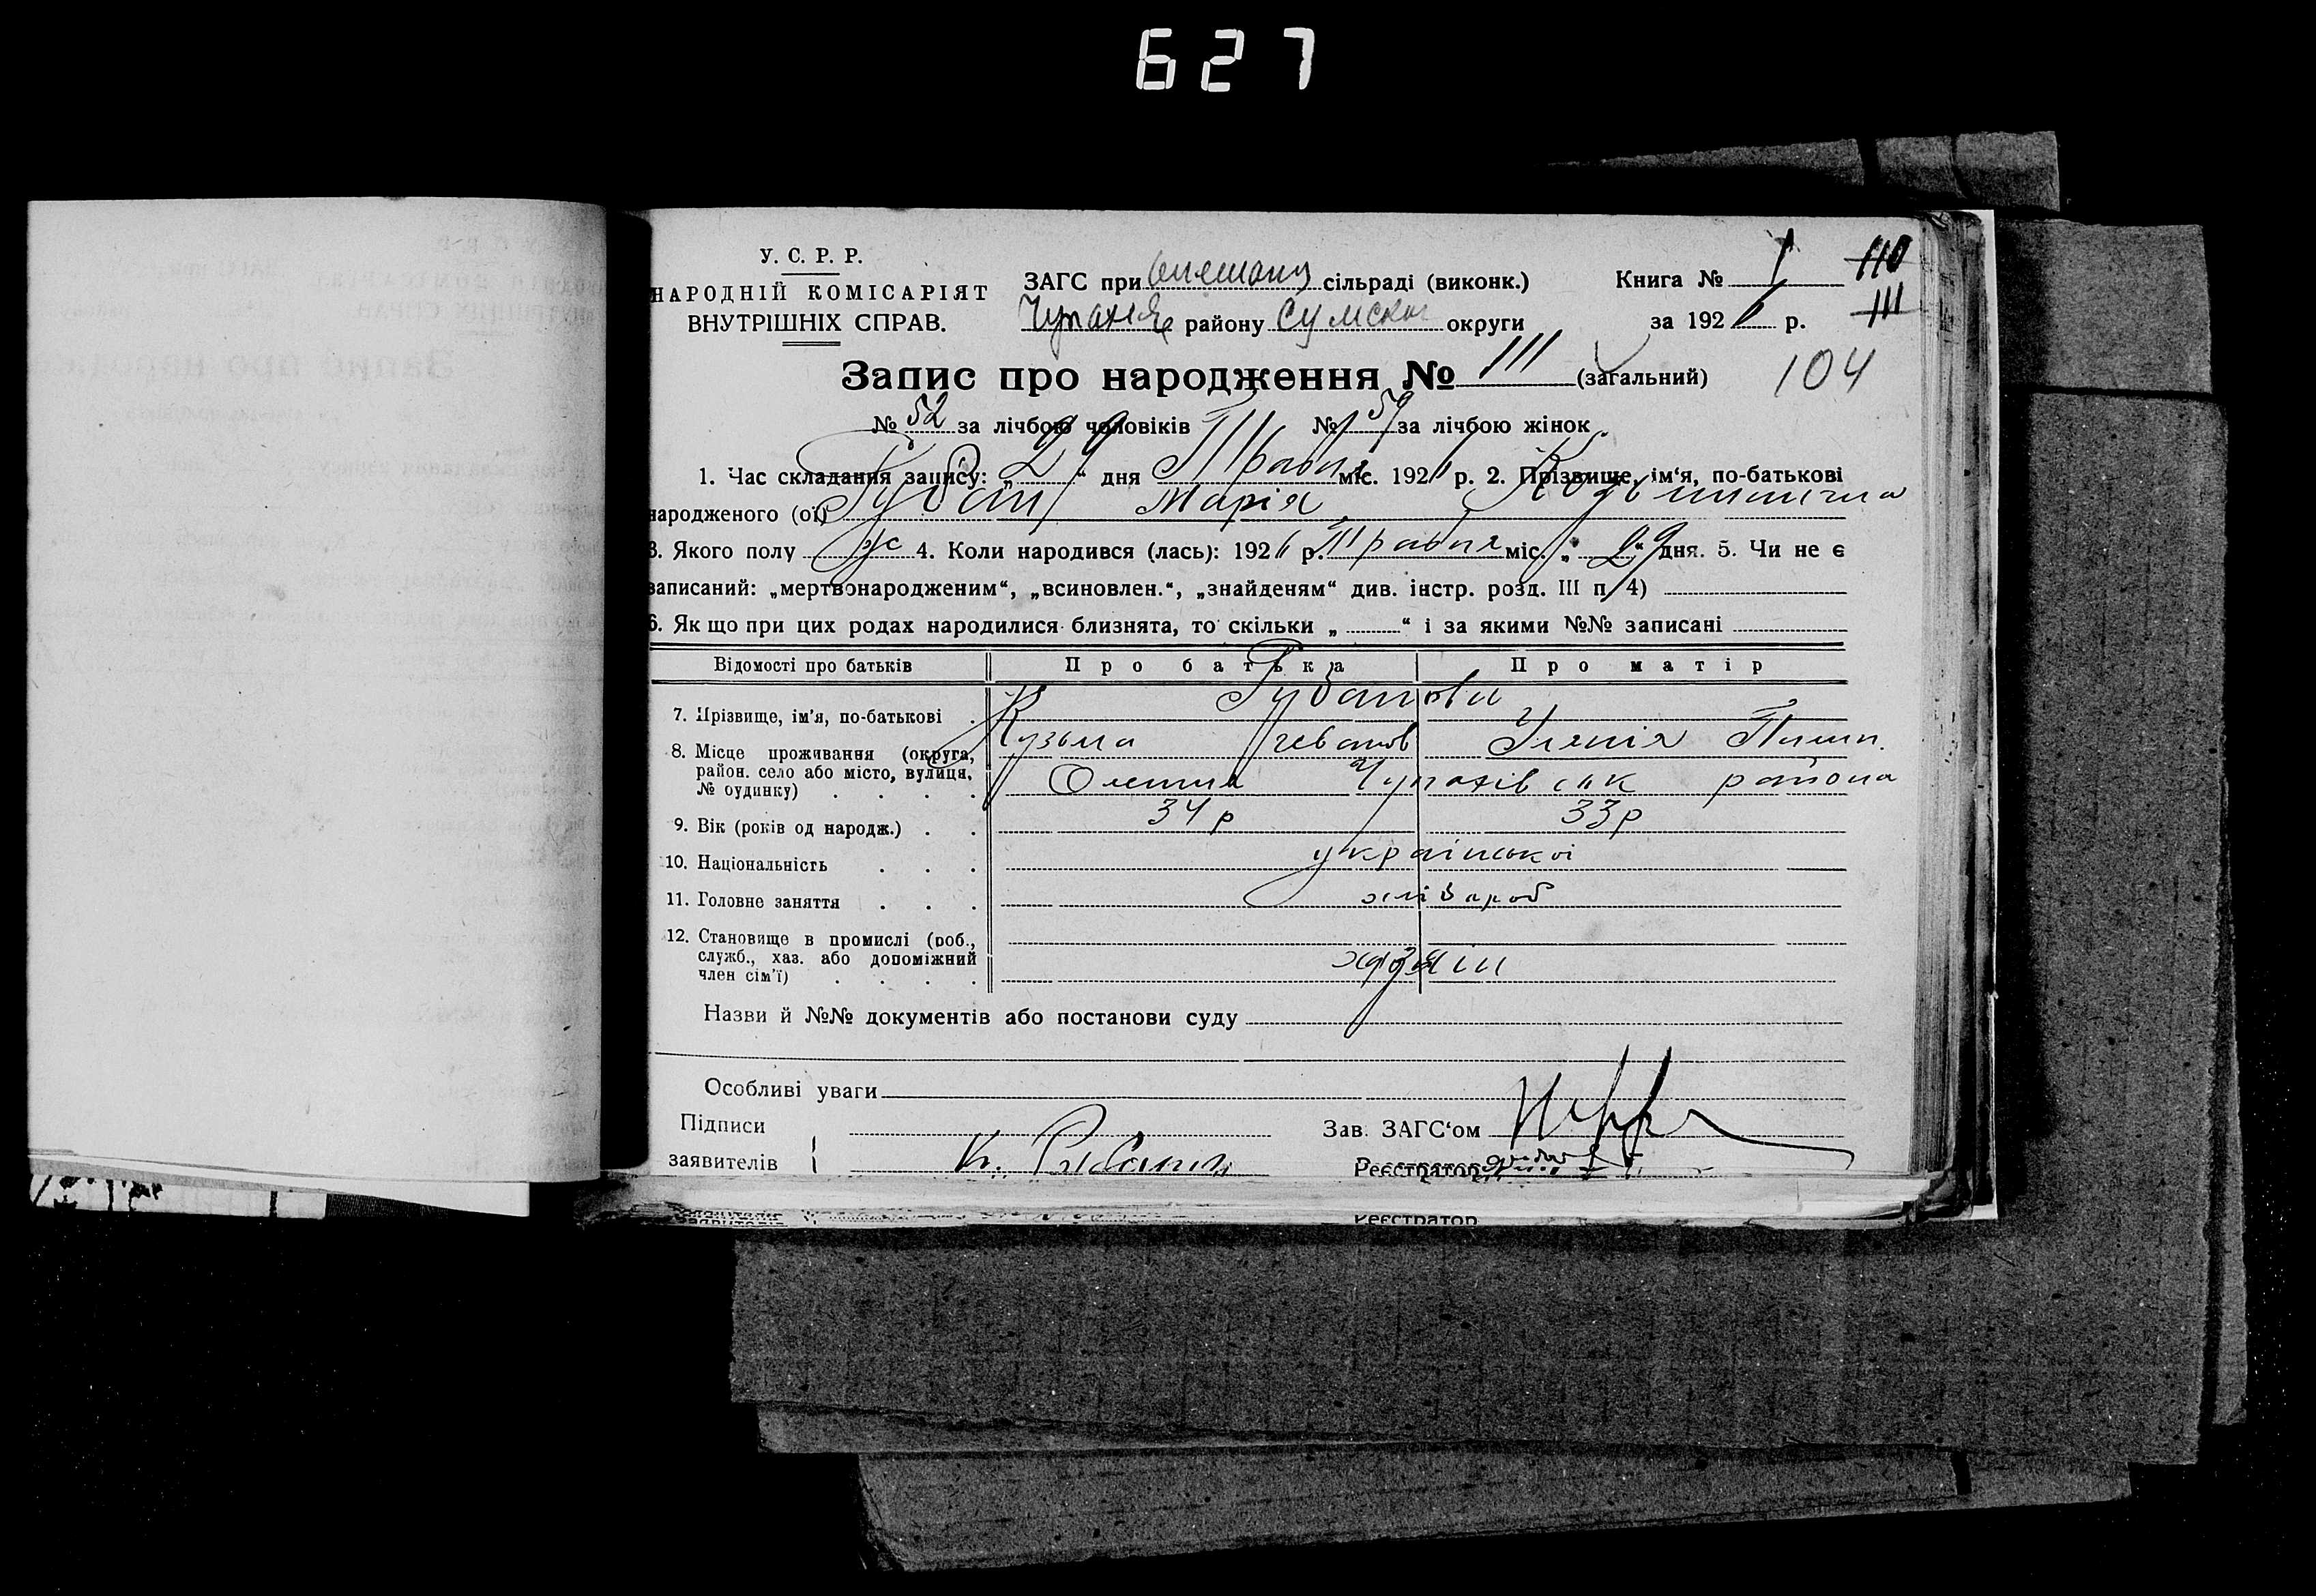 627
У. С. Р. Р.
НАРОДНІЙ КОМІСАРІЯТ
ВНУТРІШНІХ СПРАВ.
ЗАГС при сільраді (виконк.)
району Сумської округи
Книга № 1
за 192 р.
110
111
104
Запис про народження № 111 (загальний)
№ 52 за лічбою чоловіків № 59 за лічбою жінок
1. Час складання запису: „29“ дня Травня міс. 192 р. 2. Прізвище, ім‘я, по-батькові
народженого (ої) Губан Марія
3. Якого полу ж 4. Коли народився (лась): 192 р. Травня міс. „29“ дня. 5. Чи не є
записаний: „мертвонародженим“, „всиновлен.“, „знайденям“ див. інстр. розд. III п. 4)
6. Як що при цих родах народилися близнята, то скільки „ “ і за якими №№ записані
Відомості про батьків Про батька Про матір
7. Прізвище, ім‘я, по-батькові Губанови
Кузьма
8. Місце проживання (округа,
район. село або місто, вулиця,
№ будинку) района
9. Вік (років од народж.) 34 р 33 р
10. Національність української
11. Головне заняття хлібароб
12. Становище в промислі (роб.,
служб., хаз. або допоміжний
член сім‘ї) хозяїн
Назви й №№ документів або постанови суду
Особливі уваги
Підписи
заявителів
Зав. ЗАГС‘ом
Реєстратор
Реєстратор